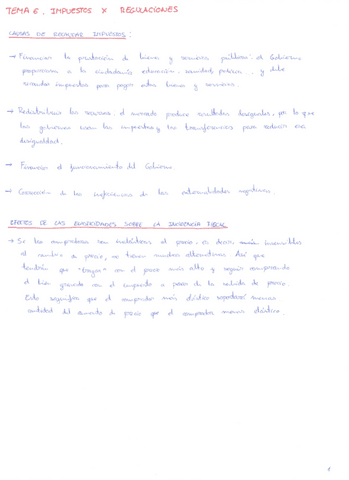 TEMA 6. IMPUESTOS Y REGULACIONES
CAUSAS DE RECAUDAR IMPUESTOS:
→ Financiar la producción de bienes y servicios públicos: el Gobierno
proporciona a la ciudadanía educación, sanidad pública... y debe
recaudar impuestos para pagar estos bienes y servicios.
→ Redistribuir los recursos: el mercado produce resultados desiguales, por lo que
los gobiernos usan los impuestos y las transferencias para reducir esa
desigualdad.
→ Financiar el funcionamiento del Gobierno.
→ Corrección de las ineficiencias de las externalidades negativas.
EFECTOS DE LAS ELASTICIDADES SOBRE LA INCIDENCIA FISCAL
→ Si los compradores son inelásticos al precio, es decir, son insensibles
al cambio de precio, no tienen muchas alternativas. Así que
tendrán que "tragar" con el precio más alto y seguir comprando
el bien gravado con el impuesto a pesar de la subida de precio.
Esto significa que el comprador más elástico soportará menos
cantidad del aumento de precio que el comprador menos elástico.
1